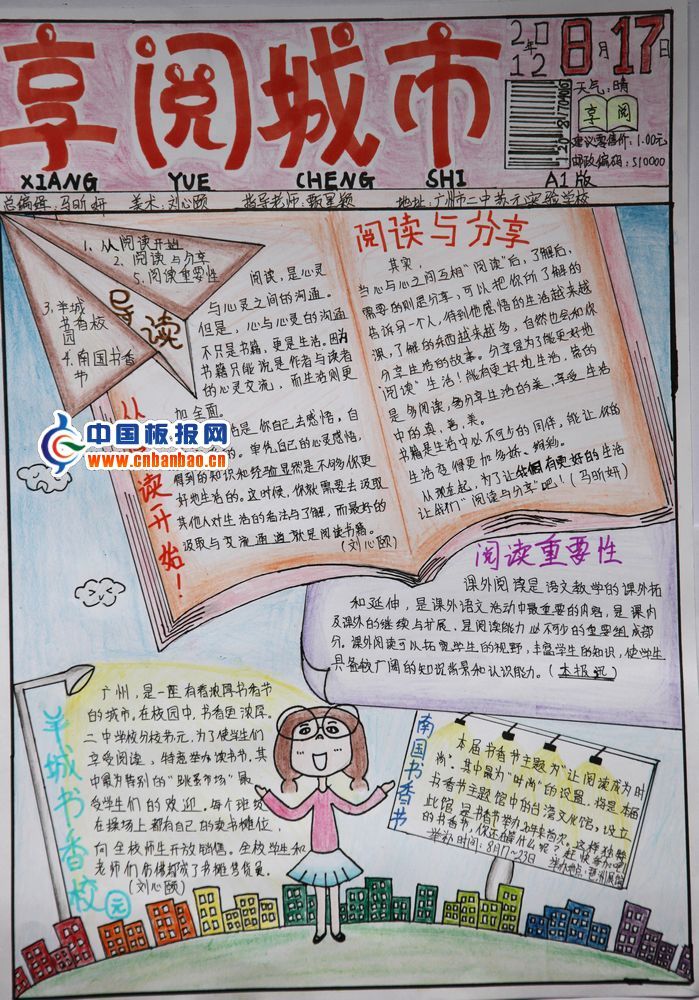 享阅城市
XIANG YUE CHENG SHI
2012年8月17日
天气:晴
享阅
建议零售价:1.00元
邮政编码:510000
A1版
总编辑:马昕妍 美术:刘心颐 指导老师:甄墨颖 地址:广州市二中苏元实验学校
导读
1.从阅读开始
2.阅读与分享
5.阅读重要性
3.羊城书香校园
4.南国书香节
从
读开始!
阅读,是心灵
与心灵之间的沟通。
但是,心与心灵的沟通
不只是书籍,更是生活。因为
书籍只能说是作者与读者
的心灵交流,而生活则更
加全面。
是你自己去感悟,自
的。单凭自己的心灵感悟,
得到的知识和经验显然是不够你更
好地生活的。这时候,你就需要去汲取
其他人对生活的看法与了解,而最好的
汲取与交流通道就是阅读书籍。
(刘心颐)
中国板报网
www.cnbanbao.cn
阅读与分享
其实,
当心与心之间互相“阅读”后,了解后,
需要的则是分享,可以把你所了解的
告诉另一个人,待到他感悟的生活越来越
深,了解的东西越来越多,自然也会和你
分享生活的改革。分享是为了能更好地
“阅读”生活!能有更好地生活,常的
是多阅读,多分享生活的美,享受生活
中的真,善,美。
书籍是生活中必不可少的同伴,能让你的
生活变得更加多娇、绚丽。
从现在起,为了让我们有更好的生活
让我们“阅读与分享”吧!(马昕妍)
阅读重要性
课外阅读是语文教学的课外拓
和延伸,是课外语文活动中最重要的内容,是课内
及课外的继续与扩展,是阅读能力必不可少的重要组成部
分。课外阅读可以拓宽学生的视野,丰富学生的知识,使学生
具备较广阔的知识背景和认识能力。(本报讯)
羊城书香校园
广州,是一座有着浓厚书香节
的城市。在校园中,书香更浓厚。
二中学校分校苏元,为了使学生们
享受阅读、特意举办读书节。其
中最为特别的“跳蚤市场”最
受学生们的欢迎。每个班级
在操场上都有自己的卖书摊位,
向全校师生开放销售。全校学生和
老师们
(刘心颐)
南国书香节
本届书香节主题为“让阅读成为时
尚”。其中最为“时尚”的设置,将是本届
书香节主题馆中的台湾文化馆,设立
此馆是书香节举办20年来首次。这样独特
的书香节,你还在等什么呢?赶快参加吧
举办时间:8月17~23日 举办地点:琶洲展馆